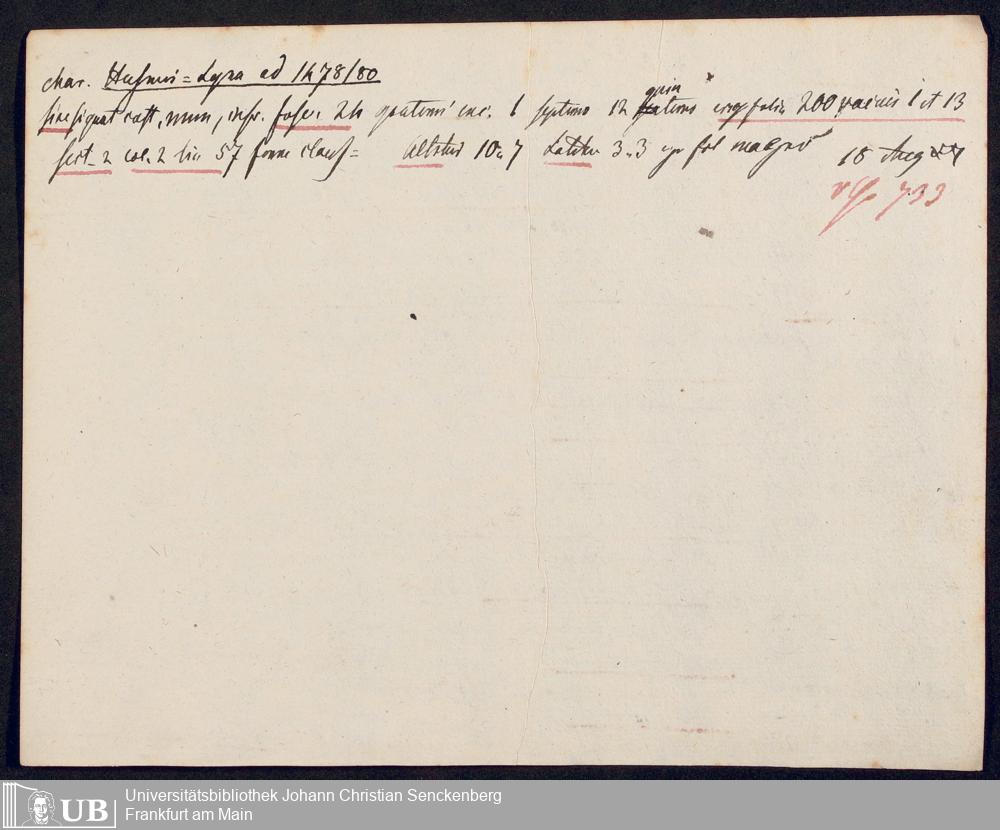 char. Husneri = Lyra ad 1478/80
sine signat cust, num, infr. fasc. 24 quaterni exc. 1 septimo 12 quin aterno ergo foliis 200 vacuis 1 et 13
sect 2 col. 2 lin 57 forme clauss = Altitud 10 : 7 Latitu 3 : 3 fol magno 18 Aug
733
UB Universitätsbibliothek Johann Christian Senckenberg
Frankfurt am Main